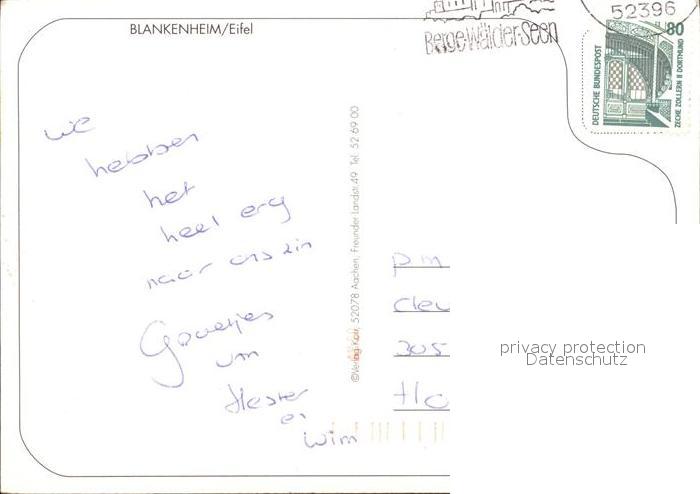 BLANKENHEIM/Eifel
52396
Berge-Wälder-Seen
80
DEUTSCHE BUNDESPOST
ZECHE ZOLLERN II DORTMUND
we
hebben
het
heel erg
naar ons zin
Groetjes
van
Hester
en
Wim
©Verlag Koir, 52078 Aachen, Freunder Landstr.49 Tel. 52 69 00
pm
305
Ho
privacy protection
Datenschutz